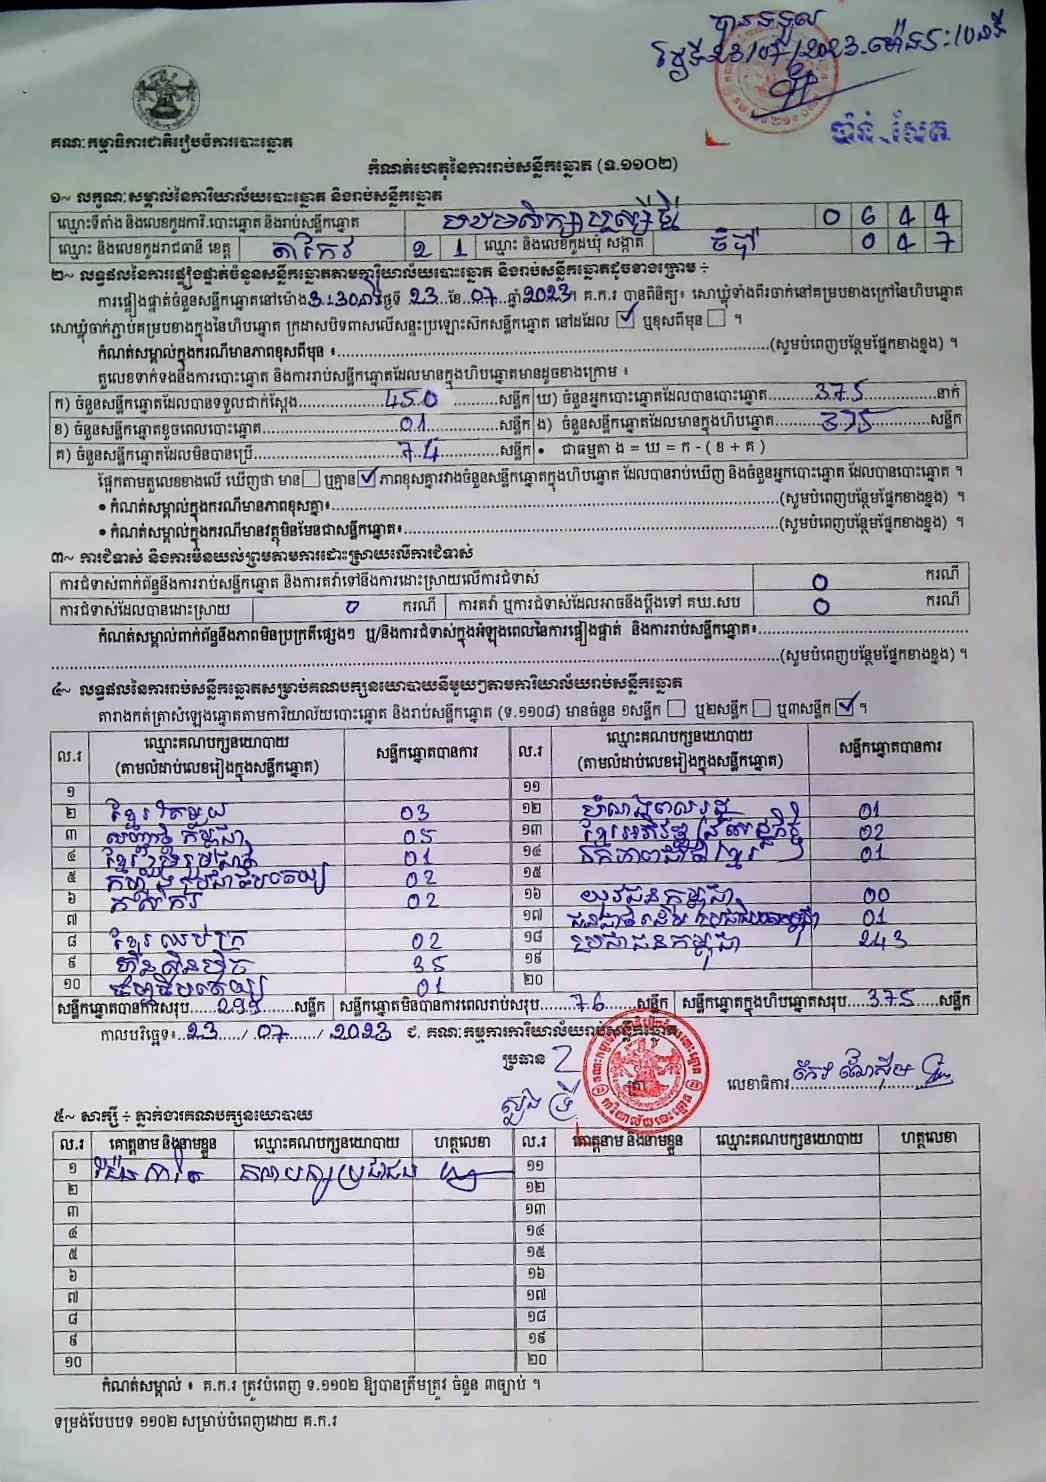 បានទទួល
ថ្ងៃទី 23/07/2023 ម៉ោង 5:10នាទី
គណៈកម្មាធិការជាតិរៀបចំការបោះឆ្នោត
កំណត់ហេតុនៃការរាប់សន្លឹកឆ្នោត (ទ.១១០២)
១~ លក្ខណៈសម្គាល់នៃការិយាល័យបោះឆ្នោត និងរាប់សន្លឹកឆ្នោត
ឈ្មោះទីតាំង និងលេខកូដការិ.បោះឆ្នោត និងរាប់សន្លឹកឆ្នោត បឋមសិក្សាឫស្សីថ្មី 0 6 4 4
ឈ្មោះ និងលេខកូដរាជធានី ខេត្ត តាកែវ 2 1 ឈ្មោះ និងលេខកូដឃុំ សង្កាត់ 0 4 7
២~ លទ្ធផលនៃការផ្ទៀងផ្ទាត់ចំនួនសន្លឹកឆ្នោតតាមការិយាល័យបោះឆ្នោត និងរាប់សន្លឹកឆ្នោតដូចខាងក្រោម ÷
ការផ្ទៀងផ្ទាត់ចំនួនសន្លឹកឆ្នោតនៅម៉ោង 3:30នាទី ថ្ងៃទី 23 ខែ 07 ឆ្នាំ 2023។ គ.ក.រ បានពិនិត្យ៖ សោឃ្លុំទាំងពីរចាក់នៅគម្របខាងក្រៅនៃហិបឆ្នោត
សោឃ្លុំចាក់ភ្ជាប់គម្របខាងក្នុងនៃហិបឆ្នោត ក្រដាសបិទពាសលើសន្ទះប្រឡោះសិកសន្លឹកឆ្នោត នៅដដែល ☑ ឬខុសពីមុន ☐ ។
កំណត់សម្គាល់ក្នុងករណីមានភាពខុសពីមុន ៖ (សូមបំពេញបន្ថែមផ្នែកខាងខ្នង) ។
តួលេខទាក់ទងនឹងការបោះឆ្នោត និងការរាប់សន្លឹកឆ្នោតដែលមានក្នុងហិបឆ្នោតមានដូចខាងក្រោម ៖
ក) ចំនួនសន្លឹកឆ្នោតដែលបានទទួលជាក់ស្តែង 450 សន្លឹក ឃ) ចំនួនអ្នកបោះឆ្នោតដែលបានបោះឆ្នោត 375 នាក់
ខ) ចំនួនសន្លឹកឆ្នោតខូចពេលបោះឆ្នោត 01 សន្លឹក ង) ចំនួនសន្លឹកឆ្នោតដែលមានក្នុងហិបឆ្នោត 375 សន្លឹក
គ) ចំនួនសន្លឹកឆ្នោតដែលមិនបានប្រើ 74 សន្លឹក • ជាធម្មតា ង = ឃ = ក - ( ខ + គ )
ផ្អែកតាមតួលេខខាងលើ ឃើញថា មាន ☐ ឬគ្មាន ☑ ភាពខុសគ្នារវាងចំនួនសន្លឹកឆ្នោតក្នុងហិបឆ្នោត ដែលបានរាប់ឃើញ និងចំនួនអ្នកបោះឆ្នោត ដែលបានបោះឆ្នោត ។
• កំណត់សម្គាល់ក្នុងករណីមានភាពខុសគ្នា៖ (សូមបំពេញបន្ថែមផ្នែកខាងខ្នង) ។
• កំណត់សម្គាល់ក្នុងករណីមានវត្ថុមិនមែនជាសន្លឹកឆ្នោត៖ (សូមបំពេញបន្ថែមផ្នែកខាងខ្នង) ។
៣~ ការជំទាស់ និងការមិនយល់ព្រមតាមការដោះស្រាយលើការជំទាស់
ការជំទាស់ពាក់ព័ន្ធនឹងការរាប់សន្លឹកឆ្នោត និងការតវ៉ាទៅនឹងការដោះស្រាយលើការជំទាស់ 0 ករណី
ការជំទាស់ដែលបានដោះស្រាយ 0 ករណី ការតវ៉ា ឬការជំទាស់ដែលអាចនឹងប្តឹងទៅ គឃ.សប 0 ករណី
កំណត់សម្គាល់ពាក់ព័ន្ធនឹងភាពមិនប្រក្រតីផ្សេងៗ ឬ/និងការជំទាស់ក្នុងអំឡុងពេលនៃការផ្ទៀងផ្ទាត់ និងការរាប់សន្លឹកឆ្នោត៖
(សូមបំពេញបន្ថែមផ្នែកខាងខ្នង) ។
៤~ លទ្ធផលនៃការរាប់សន្លឹកឆ្នោតសម្រាប់គណបក្សនយោបាយនីមួយៗតាមការិយាល័យរាប់សន្លឹកឆ្នោត
តារាងកត់ត្រាសំឡេងឆ្នោតតាមការិយាល័យបោះឆ្នោត និងរាប់សន្លឹកឆ្នោត (ទ.១១០៨) មានចំនួន ១សន្លឹក ☐ ឬ២សន្លឹក ☐ ឬ៣សន្លឹក ☑ ។
ល.រ ឈ្មោះគណបក្សនយោបាយ (តាមលំដាប់លេខរៀងក្នុងសន្លឹកឆ្នោត) សន្លឹកឆ្នោតបានការ ល.រ ឈ្មោះគណបក្សនយោបាយ (តាមលំដាប់លេខរៀងក្នុងសន្លឹកឆ្នោត) សន្លឹកឆ្នោតបានការ
១ ១១
២ ខ្មែរតែមួយ 03 ១២ 01
៣ សញ្ជាតិកម្ពុជា 05 ១៣ ខ្មែរអភិវឌ្ឍន៍សេដ្ឋកិច្ច 02
៤ ខ្មែររួបរួមជាតិ 01 ១៤ ឯកភាពជាតិខ្មែរ 01
៥ 02 ១៥
៦ កសិករ 02 ១៦ យុវជនកម្ពុជា 00
៧ ១៧ ជនជាតិដើមប្រជាធិបតេយ្យកម្ពុជា 01
៨ ខ្មែរឈប់ក្រ 02 ១៨ ប្រជាជនកម្ពុជា 243
៩ ហ៊្វុនស៊ិនប៉ិច 35 ១៩
១០ 01 ២០
សន្លឹកឆ្នោតបានការសរុប 299 សន្លឹក សន្លឹកឆ្នោតមិនបានការពេលរាប់សរុប 76 សន្លឹក សន្លឹកឆ្នោតក្នុងហិបឆ្នោតសរុប 375 សន្លឹក
កាលបរិច្ឆេទ៖ 23 / 07 / 2023 ជ. គណៈកម្មការការិយាល័យរាប់សន្លឹកឆ្នោត
ប្រធាន លេខាធិការ
៥~ សាក្សី ÷ ភ្នាក់ងារគណបក្សនយោបាយ
ល.រ គោត្តនាម និងនាមខ្លួន ឈ្មោះគណបក្សនយោបាយ ហត្ថលេខា ល.រ គោត្តនាម និងនាមខ្លួន ឈ្មោះគណបក្សនយោបាយ ហត្ថលេខា
១ គណបក្សប្រជាជន ១១
២ ១២
៣ ១៣
៤ ១៤
៥ ១៥
៦ ១៦
៧ ១៧
៨ ១៨
៩ ១៩
១០ ២០
កំណត់សម្គាល់ ៖ គ.ក.រ ត្រូវបំពេញ ទ.១១០២ ឱ្យបានត្រឹមត្រូវ ចំនួន ៣ច្បាប់ ។
ទម្រង់បែបបទ ១១០២ សម្រាប់បំពេញដោយ គ.ក.រ